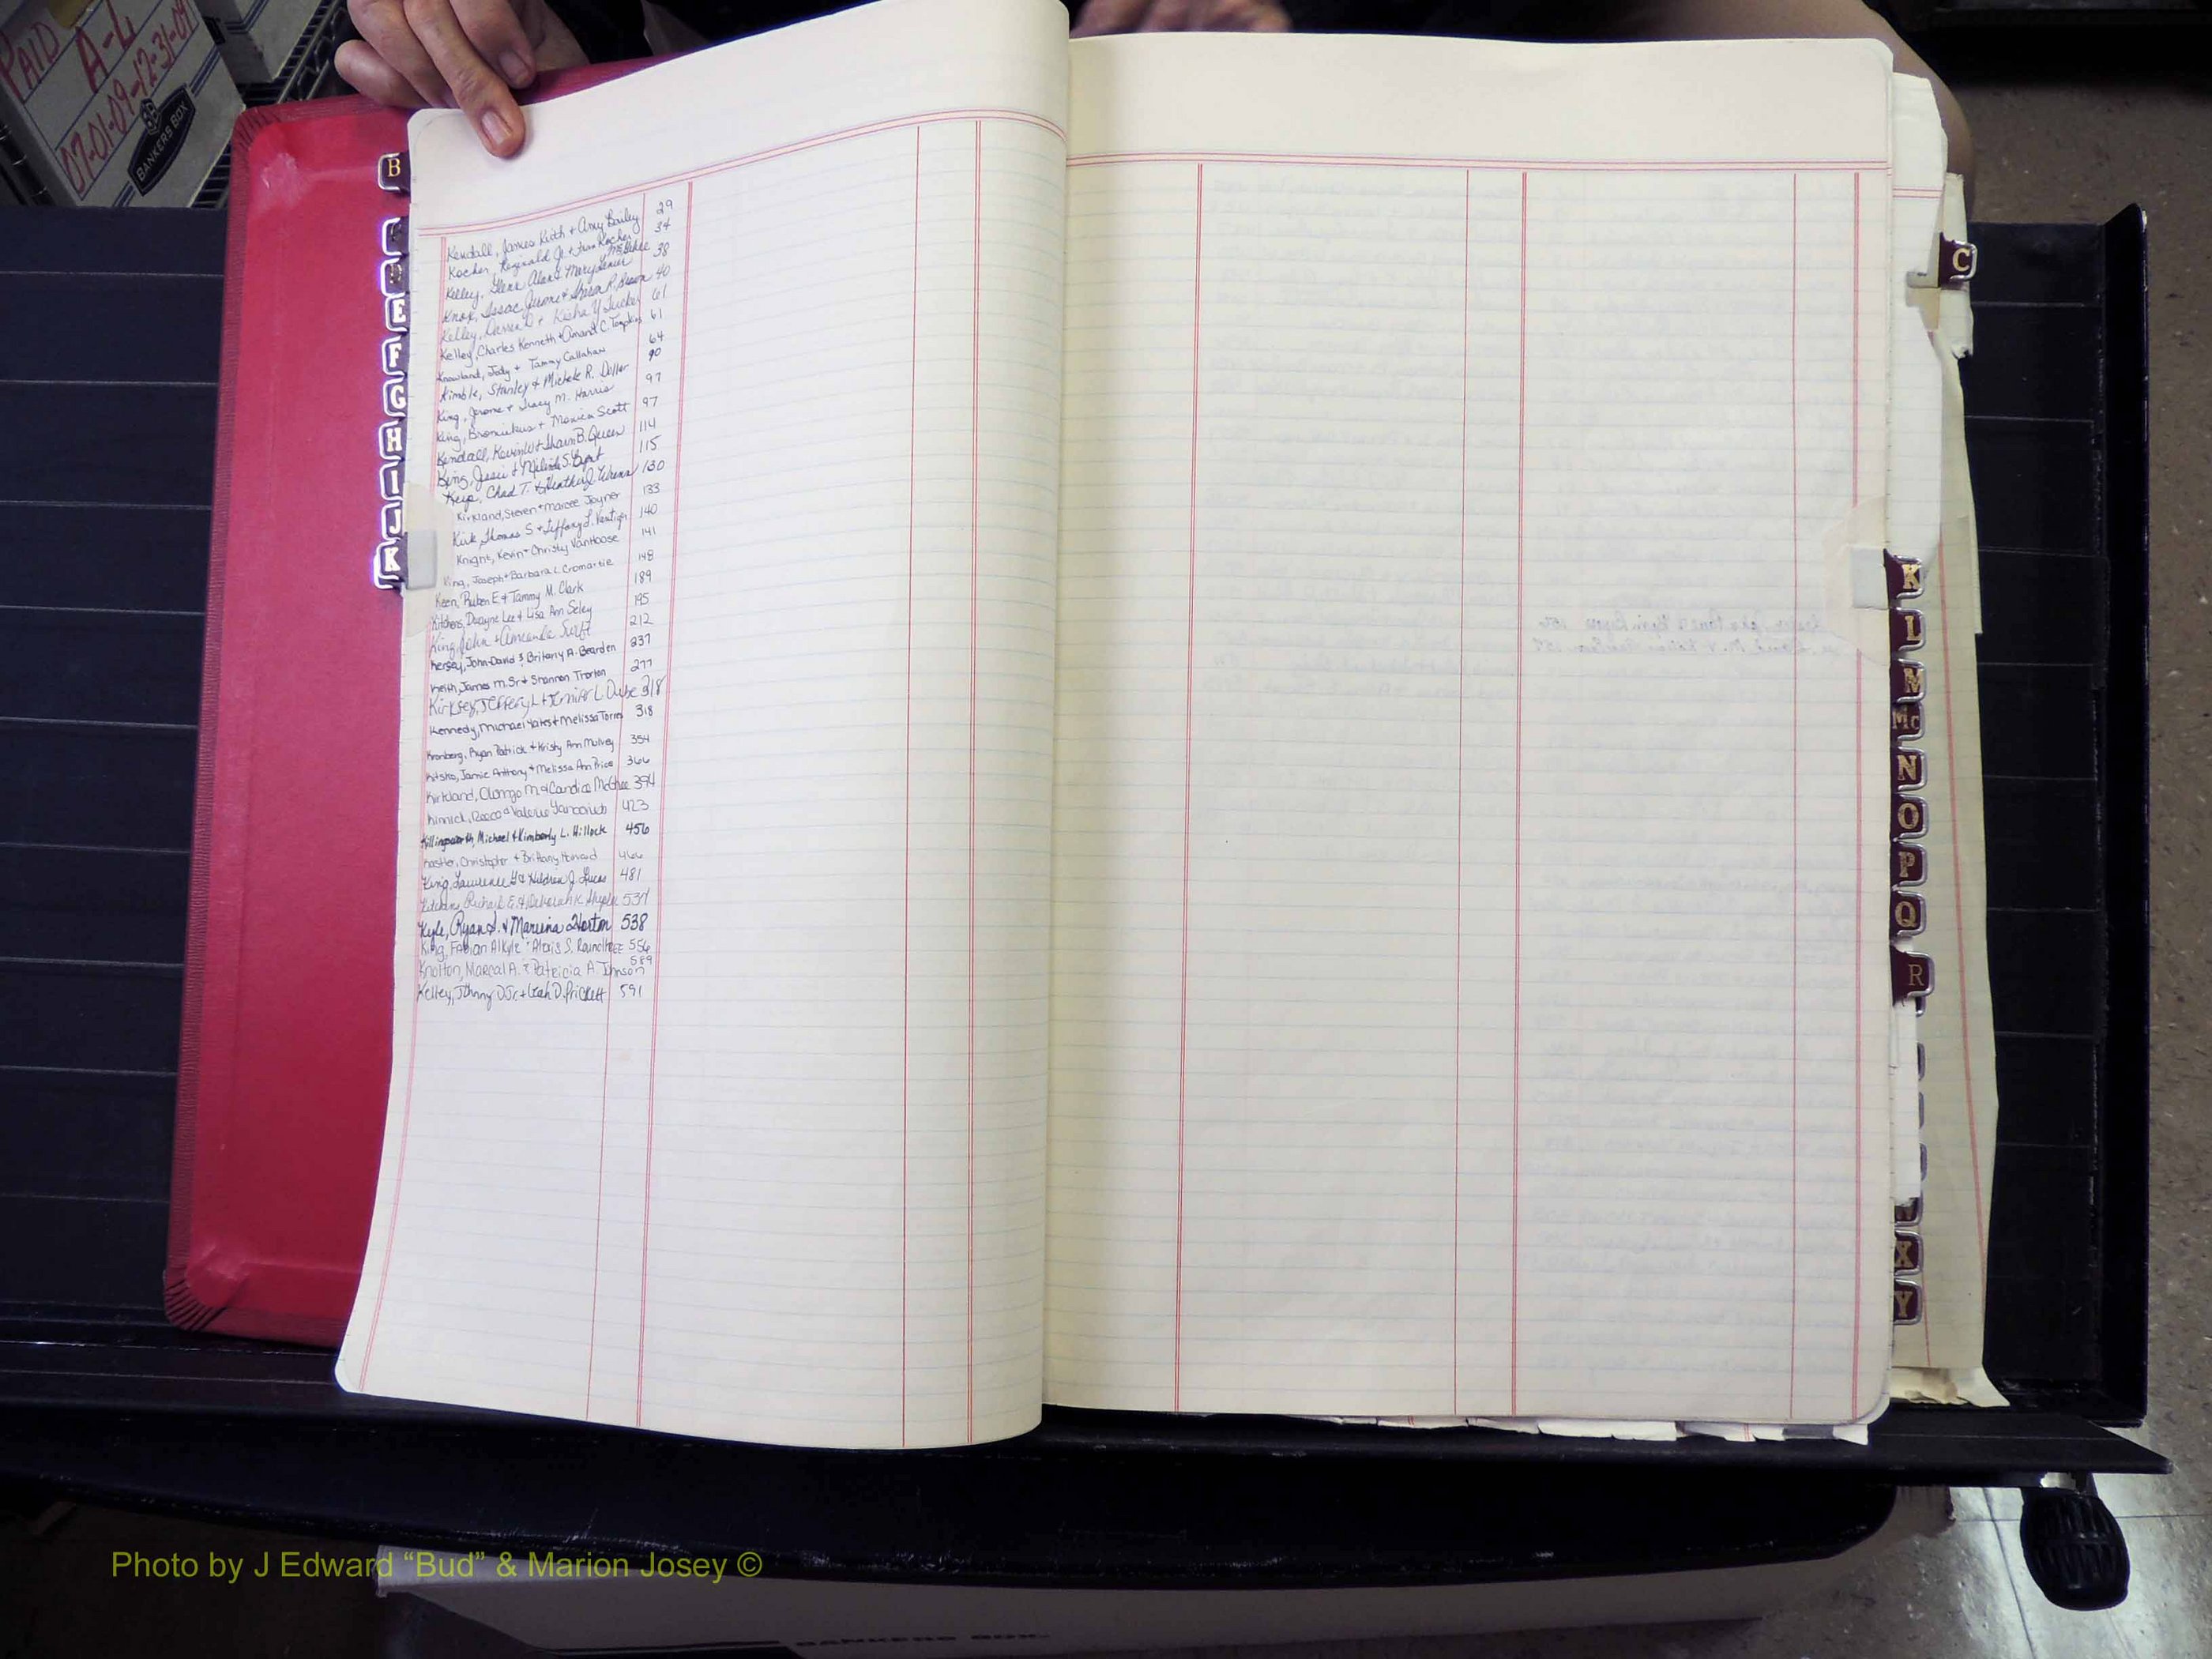 PAID
A-L
07-01-09-12-31-09
BANKERS BOX
B
E
F
G
H
I
J
K
Kendall, James Keith & Amy Bailey 29
Kocher, Reginald Jr. + Rocher 34
Kelley, Glenn Alan & Mary McBride 38
Knox, Issac Jerome & Sharon R. Brown 40
Kelley, Darren D + Keisha Y Tucker 61
Kelley, Charles Kenneth + Amand C. Tompkins 61
Knowland, Jody + Tammy Callahan 64
Kimble, Stanley & Michele R. Dollar 90
King, Jerome + Tracy M. Harris 97
King, + Monica Scott 97
Kendall, Kevin W + Sharn B. Queen 114
King, Jessie & Milinda S. 115
Keip, Chad T. & Heather J. 130
Kirkland, Steven + Marcee Joyner 133
Kirk, Thomas S + Tiffany L. 140
Knight, Kevin + Christy VanHoose 141
King, Joseph + Barbara L. Cromartie 148
Keen, Ruben E & Tammy M. Clark 189
Kitchens, Dwayne Lee & Lisa Ann Seley 195
King, John + Amanda Swift 212
Kersey, John-David & Brittany A. Bearden 237
Keith, James M. Sr & Shannon Trorton 277
Kirksey, Jeffery L + Jennifer L Dube 318
Kennedy, Michael Yates + Melissa Torres 318
Kronberg, Ryan Patrick + Kristy Ann Mulvey 354
Kitsko, Jamie Anthony + Melissa Ann Price 366
Kirkland, Olongo M. & Candice McGhee 394
Kinnick, Rocco & Valerie 423
Killingsworth, Michael + Kimberly L. Hillock 456
Kastler, Christopher + Brittany Howard 466
King, Lawrence & Hildren J. Lucas 481
Kitchens, Richard E. & Deborah K. 537
Kyle, Ryan S. & Marina Horton 538
King, Fabian Alkyle & Alexis S. Roundtree 556
Knolton, Marcal A. & Patricia A. Johnson 589
Kelley, Johnny D Jr. + Leah D. Prickett 591
C
K
L
M
Mc
N
O
P
Q
R
X
Y
Photo by J Edward “Bud” & Marion Josey ©
BANKERS BOX